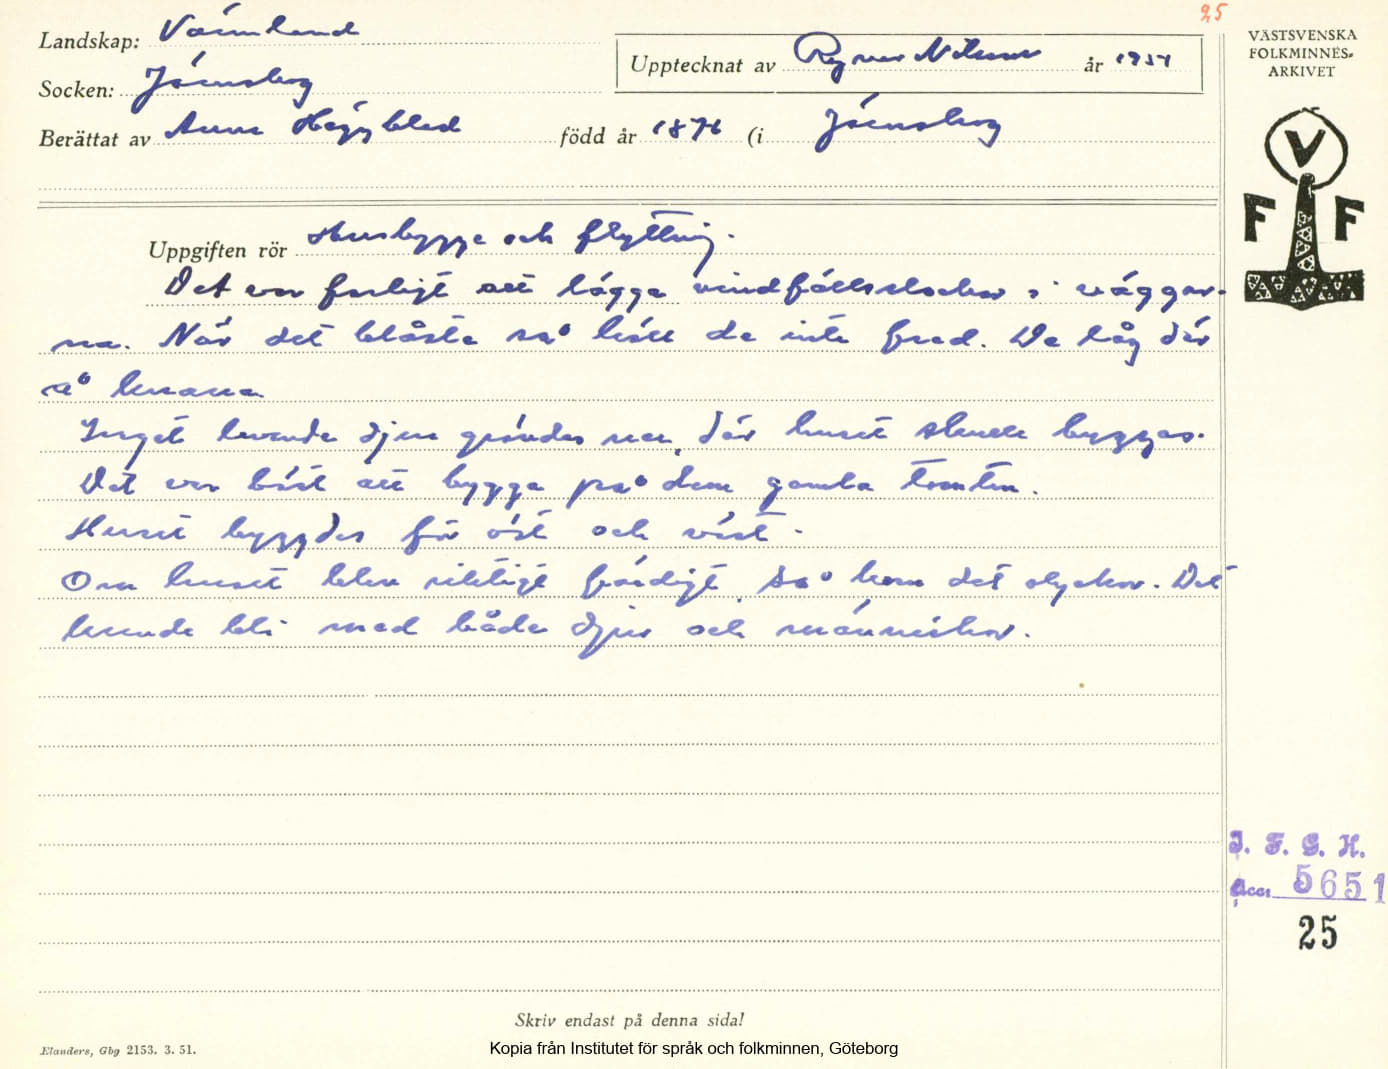 25
Landskap: Värmland
Socken: Järnskog
Berättat av Anna Högblad född år 1876 (i Järnskog
Upptecknat av Ragnar Nilsson år 1951
VÄSTSVENSKA
FOLKMINNES-
ARKIVET
V
F F
Uppgiften rör Husbygge och flyttning.
Det var farligt att lägga vindfällsstockar i väggar-
na. När det blåste så höll de inte fred. De låg där
å
Inget levande djur grävdes ner, där huset skulle byggas.
Det var bäst att bygga på den gamla tomten.
Huset byggdes för öst och väst.
Om huset blev riktigt färdigt, så kom det olyckor. Det
kunde bli med både djur och människor.
I. F. G. H.
Acc. 5651
25
Skriv endast på denna sida!
Elanders, Gbg 2153. 3. 51.
Kopia från Institutet för språk och folkminnen, Göteborg